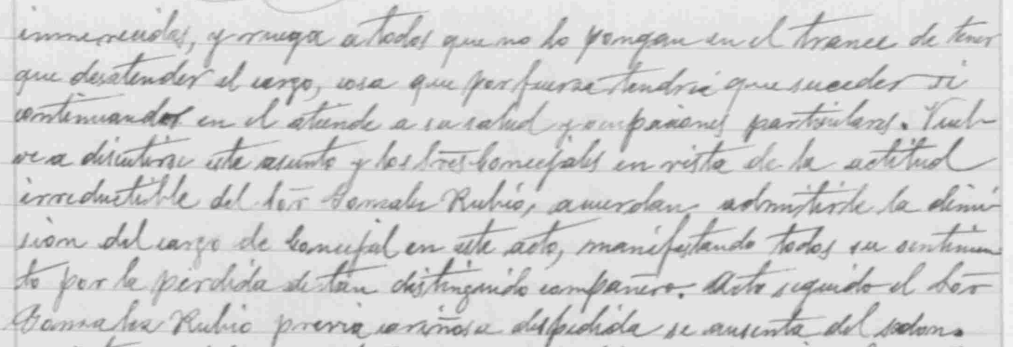 inmerecidas, y ruega a todos que no lo pongan en el trance de tener
que desatender el cargo, cosa que por fuerza tendria que suceder si
continuando en el atiende a su salud y ocupaciones particulares. Vuel-
ve a discutirse este asunto y los tres Concejales en vista de la actitud
irreductible del Sor Gonzalez Rubio, acuerdan admitirle la dimi-
sion del cargo de Concejal en este acto, manifestando todos su sentimien-
to por la perdida de tan distinguido compañero. Acto seguido el Sor
Gonzalez Rubio previa cariñosa despedida se ausenta del salon.